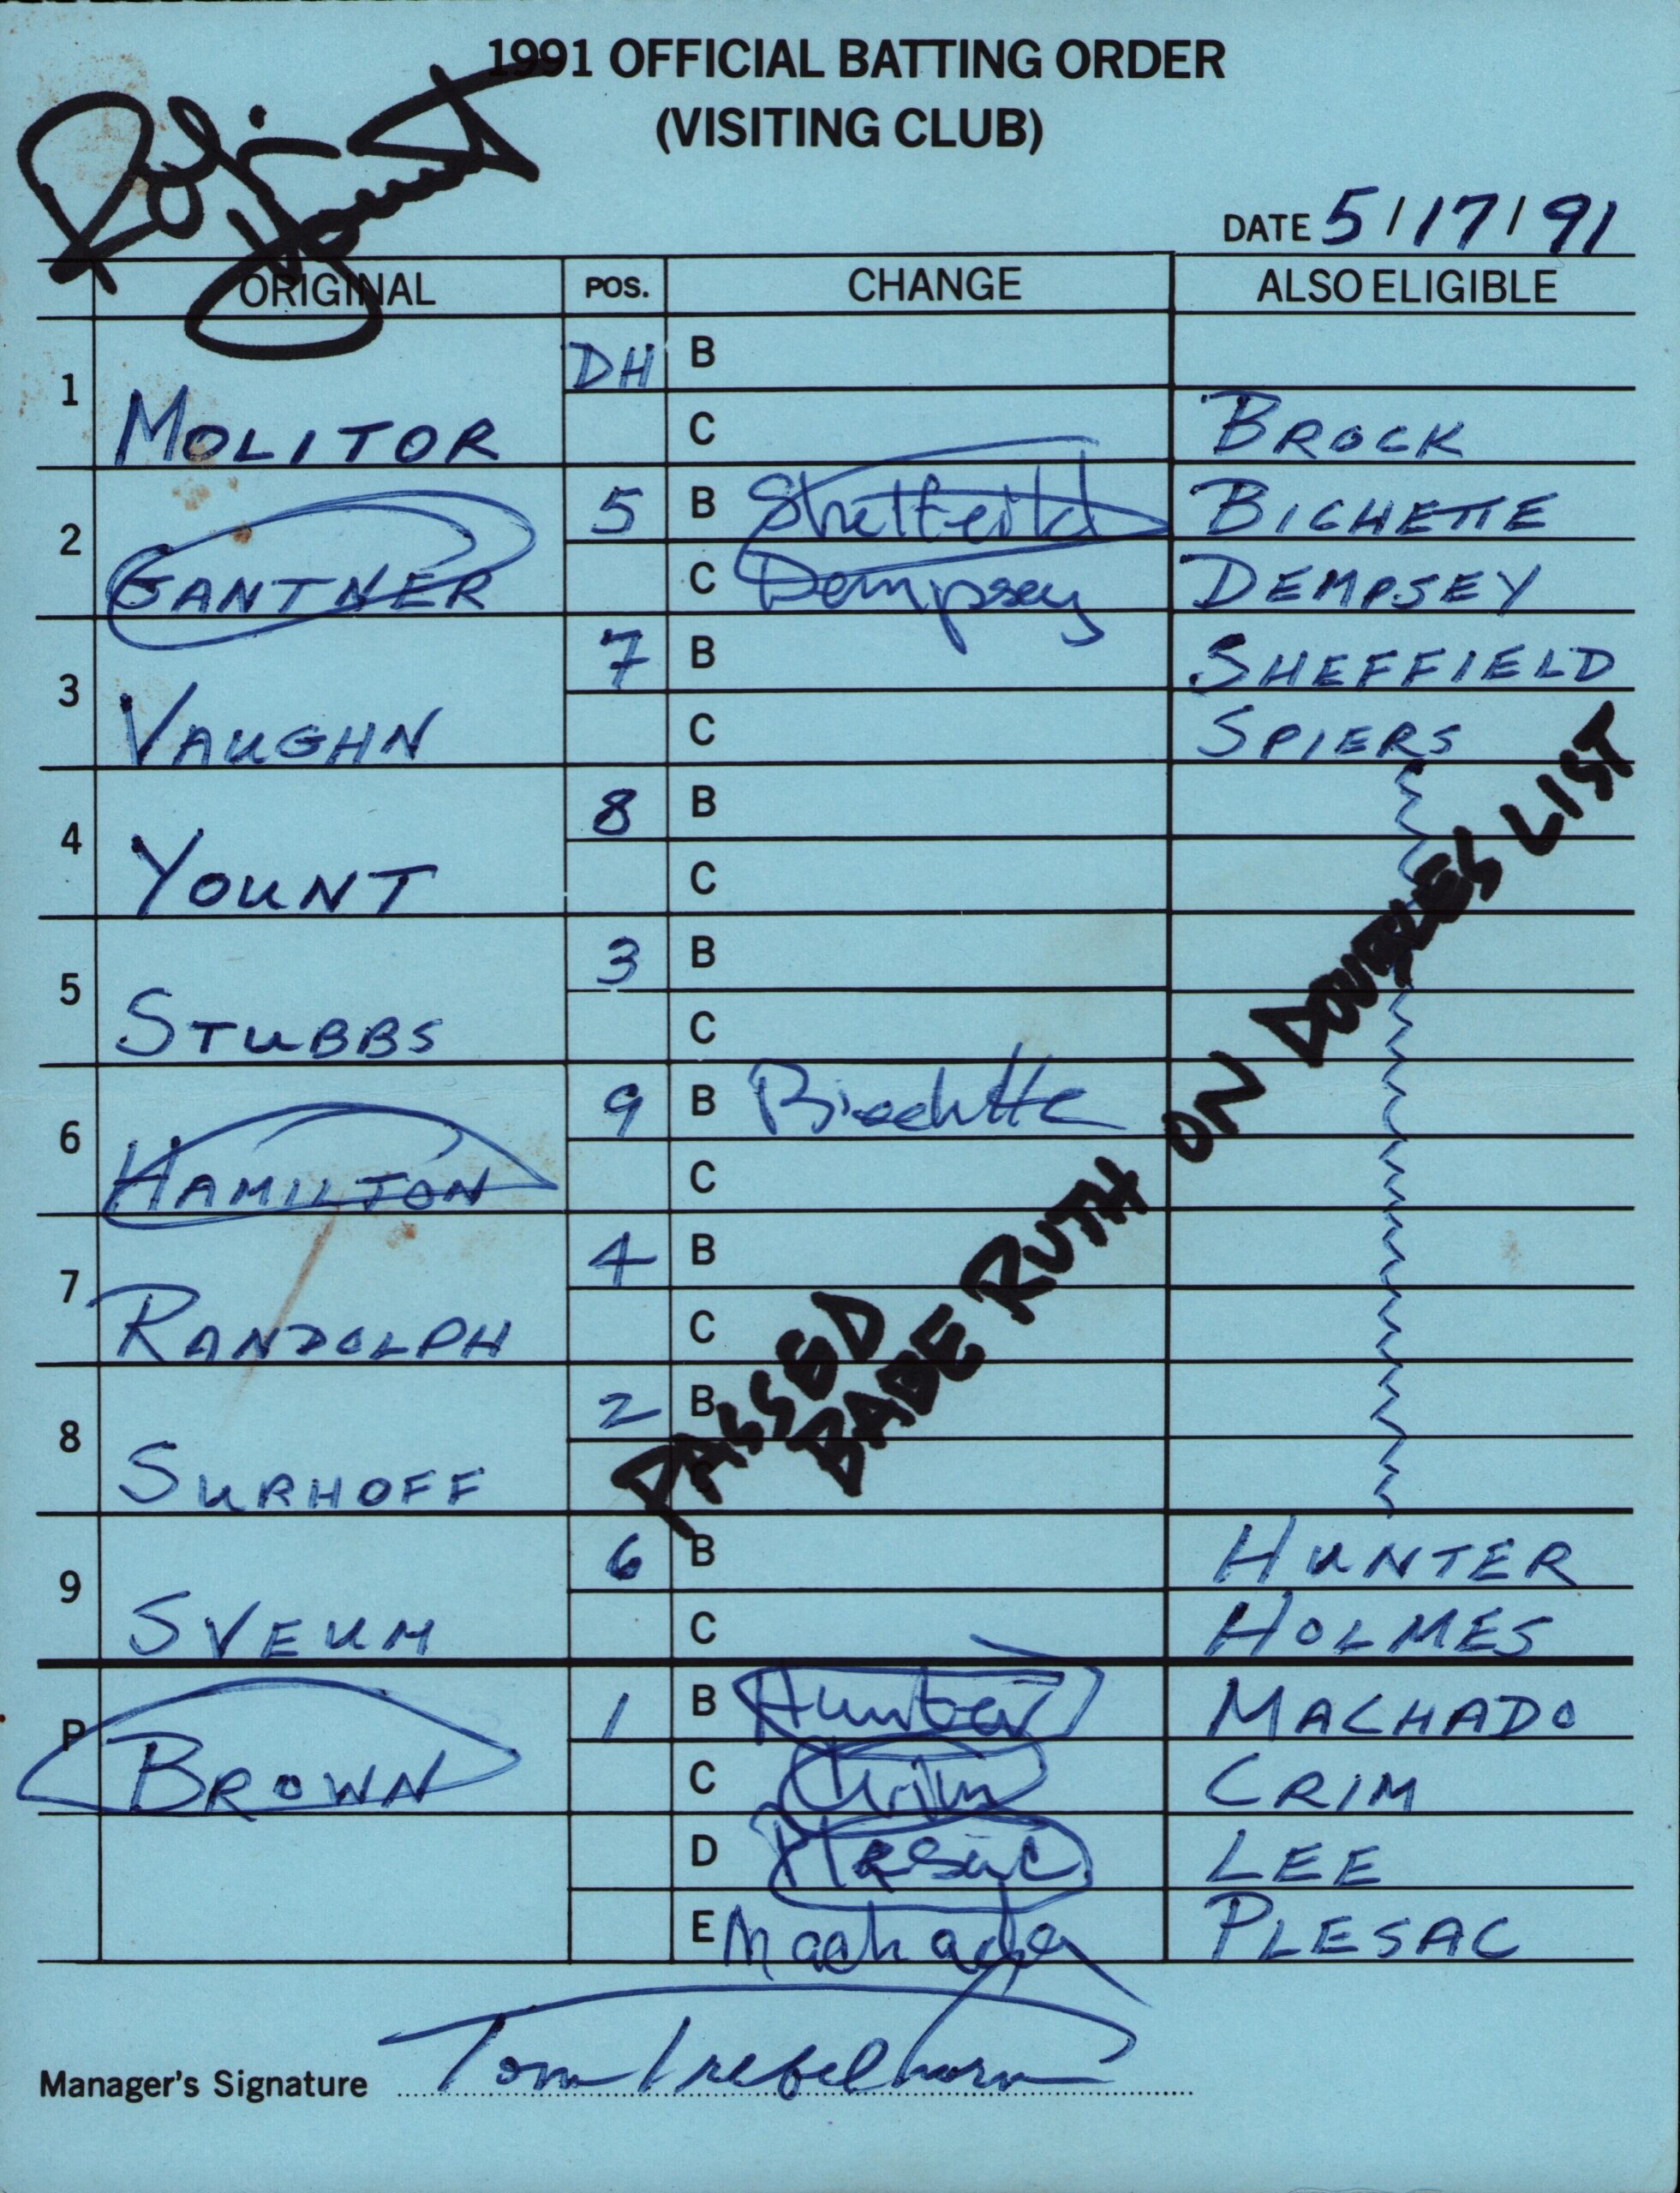 1991 OFFICIAL BATTING ORDER
(VISITING CLUB)
Robin Yount
DATE 5/17/91
ORIGINAL POS. CHANGE ALSO ELIGIBLE
1 MOLITOR DH B
C BROCK
2 GANTNER 5 B Sheffeild BICHETTE
C Dempsey DEMPSEY
3 VAUGHN 7 B SHEFFIELD
C SPIERS
4 YOUNT 8 B
C
5 STUBBS 3 B
C
6 HAMILTON 9 B Bicchette
C
7 RANDOLPH 4 B
C
8 SURHOFF 2 B
C
PASSED
BABE RUTH ON DOUBLES LIST
9 SVEUM 6 B HUNTER
C HOLMES
P BROWN 1 B Hunter MACHADO
C Crim CRIM
D Plesac LEE
E Machado PLESAC
Manager's Signature Tom Trebelhorn